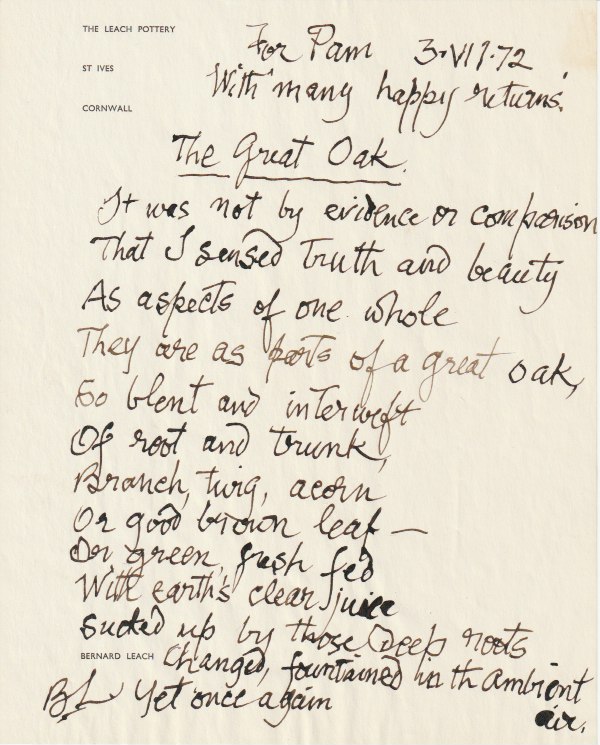 THE LEACH POTTERY
ST IVES
CORNWALL
For Pam 3·VII·72
With many happy returns.
The Great Oak.
It was not by evidence or comparison
That I sensed Truth and beauty
As aspects of one whole
They are as parts of a great oak,
So blent and interweft
Of root and trunk,
Branch, twig, acorn
Or good brown leaf —
Or, green, fresh fed
With earth's clear juice
Sucked up by those Deep roots
BERNARD LEACH Changed, fountained in th ambient air.
BL Yet once again